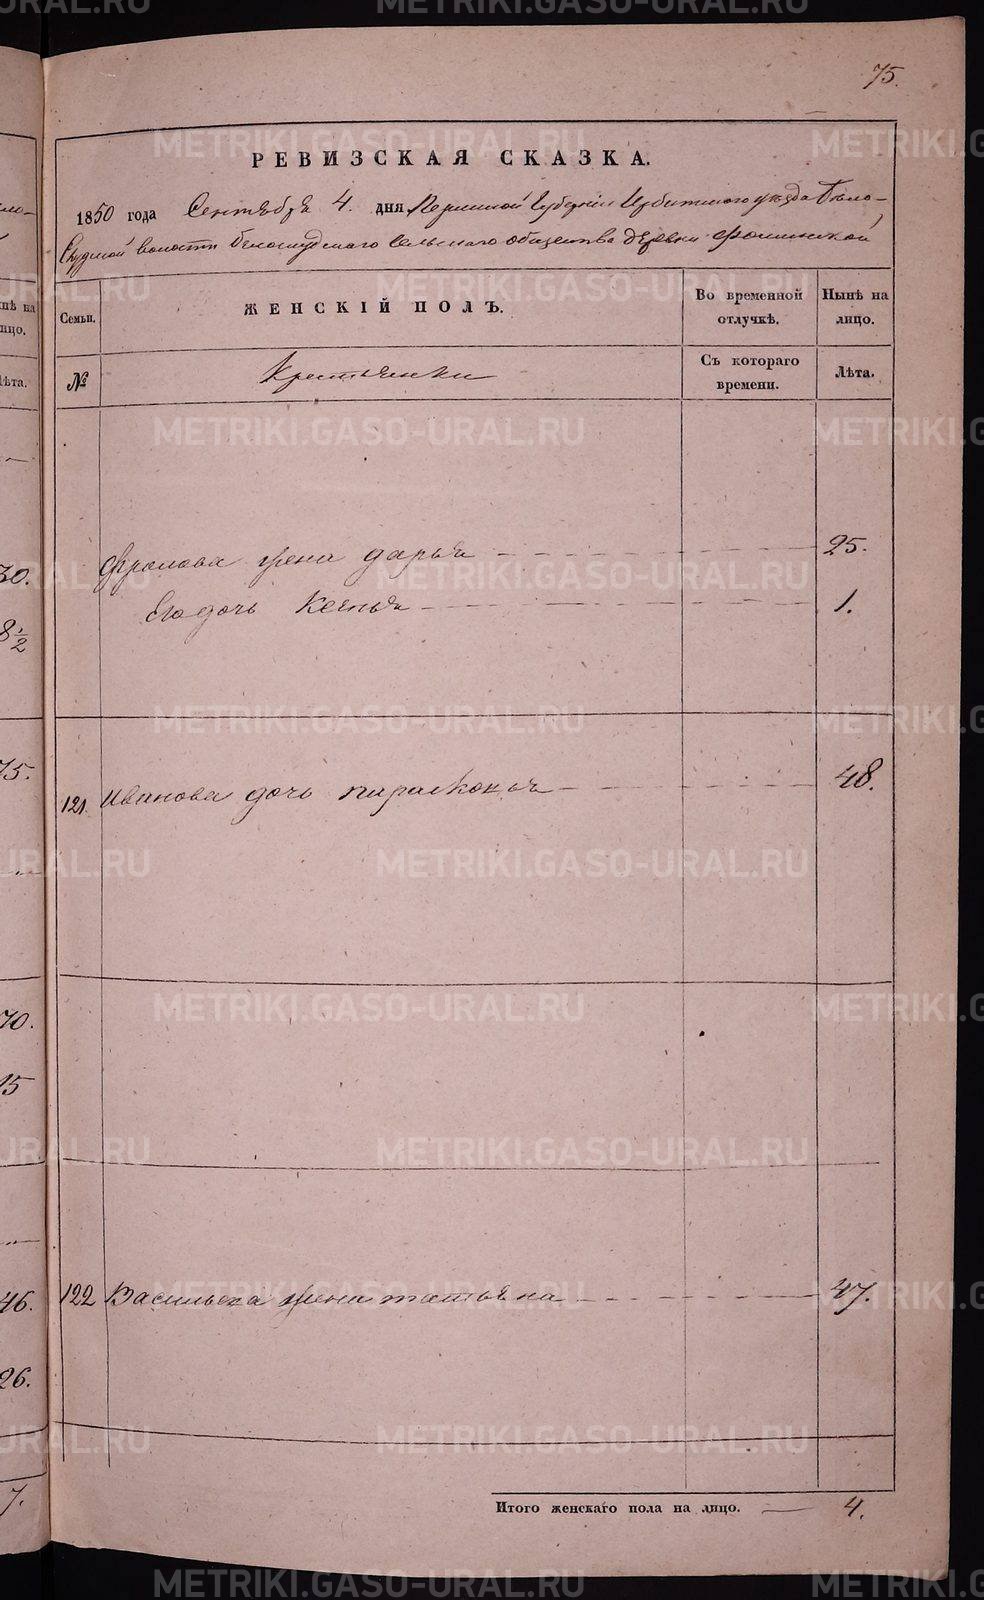 75.
РЕВИЗСКАЯ СКАЗКА.
1850 года Сентября 4. дня Пермской Губерніи Ирбитского уезда Бело-
слудской волости белослудскаго сельскаго общества деревни Фоминской
Семьи. ЖЕНСКІЙ ПОЛЪ. Во временной отлучкѣ. Нынѣ на лицо.
№ Крестьянки Съ котораго времени. Лѣта.
Фролова жена дарья 25.
Его дочь Ксенья 1.
121. Иванова дочь парасковья 48.
122 Васильева жена татьяна 47.
Итого женскаго пола на лицо. 4.
нѣ на
ицо.
ѣта.
30.
8½
75.
70.
15
46.
26.
7.
METRIKI.GASO-URAL.RU